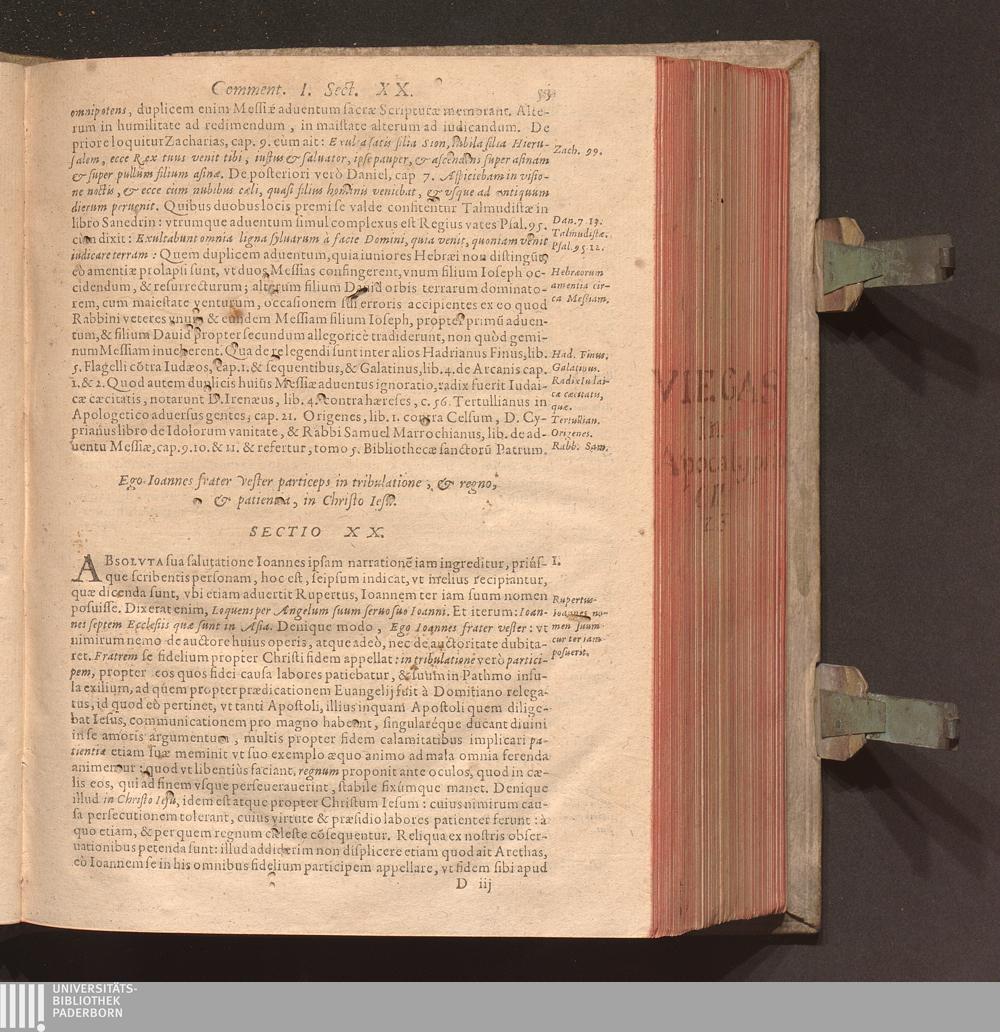 Comment. I. Sect. XX.
omnipotens, duplicem enim Messiæ aduentum sacræ Scripturæ memorant. Alte-
rum in humilitate ad redimendum, in maiestate alterum ad iudicandum. De
priore loquitur Zacharias, cap. 9. cum ait: Exulta satis filia Sion, iubila filia Hieru-
salem, ecce Rex tuus venit tibi, iustus & saluator, ipse pauper, & ascendens super asinam
& super pullum filium asinæ. De posteriori verò Daniel, cap 7. Aspiciebam in visio-
ne noctis, & ecce cum nubibus cæli, quasi filius hominis veniebat, & vsque ad antiquum
dierum peruenit. Quibus duobus locis premi se valde confitentur Talmudistæ in
libro Sanedrin: vtrumque aduentum simul complexus est Regius vates Psal. 95.
cùm dixit: Exultabunt omnia ligna syluarum à facie Domini, quia venit, quoniam venit
iudicare terram: Quem duplicem aduentum, quia iuniores Hebræi non distingũt,
eò amentiæ prolapsi sunt, vt duos Messias confingerent, vnum filium Ioseph oc-
cidendum, & resurrecturum; alterum filium Dauid orbis terrarum dominato-
rem, cum maiestate venturum, occasionem sui erroris accipientes ex eo quod
Rabbini veteres vnum & eundem Messiam filium Ioseph, propter primũ aduen-
tum, & filium Dauid propter secundum allegoricè tradiderunt, non quòd gemi-
num Messiam inueherent. Qua de re legendi sunt inter alios Hadrianus Finus, lib.
5. Flagelli cõtra Iudæos, cap. 1. & sequentibus, & Galatinus, lib. 4. de Arcanis cap.
1. & 2. Quod autem duplicis huius Messiæ aduentus ignoratio, radix fuerit Iudai-
cæ cæcitatis, notarunt D. Irenæus, lib. 4. contra hæreses, c. 56. Tertullianus in
Apologetico aduersus gentes, cap. 21. Origenes, lib. 1. contra Celsum, D. Cy-
prianus libro de Idolorum vanitate, & Rabbi Samuel Marrochianus, lib. de ad-
uentu Messiæ, cap. 9. 10. & 11. & refertur, tomo 5. Bibliothecæ sanctorũ Patrum.
Zach. 99.
Dan. 7. 13.
Talmudistæ.
Psal. 95. 12.
Hebræorum
amentia cir-
ca Messiam.
Had. Finus.
Galatinus.
Radix Iudai-
cæ cæcitatis,
quæ.
Tertullian.
Origenes.
Rabb. Sam.
Ego Ioannes frater vester particeps in tribulatione, & regno,
& patientia, in Christo Iesu.
SECTIO XX.
ABSOLVTA sua salutatione Ioannes ipsam narrationẽ iam ingreditur, priúf-
que scribentis personam, hoc est, seipsum indicat, vt melius recipiantur,
quæ dicenda sunt, vbi etiam aduertit Rupertus, Ioannem ter iam suum nomen
posuisse. Dixerat enim, Loquens per Angelum suum seruo suo Ioanni. Et iterum: Ioan-
nes septem Ecclesiis quæ sunt in Asia. Denique modo, Ego Ioannes frater vester: vt
nimirum nemo de auctore huius operis, atque adeò, nec de auctoritate dubita-
ret. Fratrem se fidelium propter Christi fidem appellat: in tribulatione verò partici-
pem, propter eos quos fidei causa labores patiebatur, & suum in Pathmo insu-
la exilium, ad quem propter prædicationem Euangelij fuit à Domitiano relega-
tus, id quod eò pertinet, vt tanti Apostoli, illius inquam Apostoli quem dilige-
bat Iesus, communicationem pro magno habeant, singularéque ducant diuini
in se amoris argumentum, multis propter fidem calamitatibus implicari pa-
tientiæ etiam suæ meminit vt suo exemplo æquo animo ad mala omnia ferenda
animemur: quod vt libentiùs faciant, regnum proponit ante oculos, quod in cæ-
lis eos, qui ad finem vsque perseuerauerint, stabile fixúmque manet. Denique
illud in Christo Iesu, idem est atque propter Christum Iesum: cuius nimirum cau-
sa persecutionem tolerant, cuius virtute & præsidio labores patienter ferunt: à
quo etiam, & per quem regnum cæleste cõsequentur. Reliqua ex nostris obser-
uationibus petenda sunt: illud addiderim non displicere etiam quod ait Arethas,
eò Ioannem se in his omnibus fidelium participem appellare, vt fidem sibi apud
I.
Rupertus
Ioannes no-
men suum
cur ter iam
posuerit.
D iij
VIEGAS
In
Apocalypsin
UNIVERSITÄTS-
BIBLIOTHEK
PADERBORN